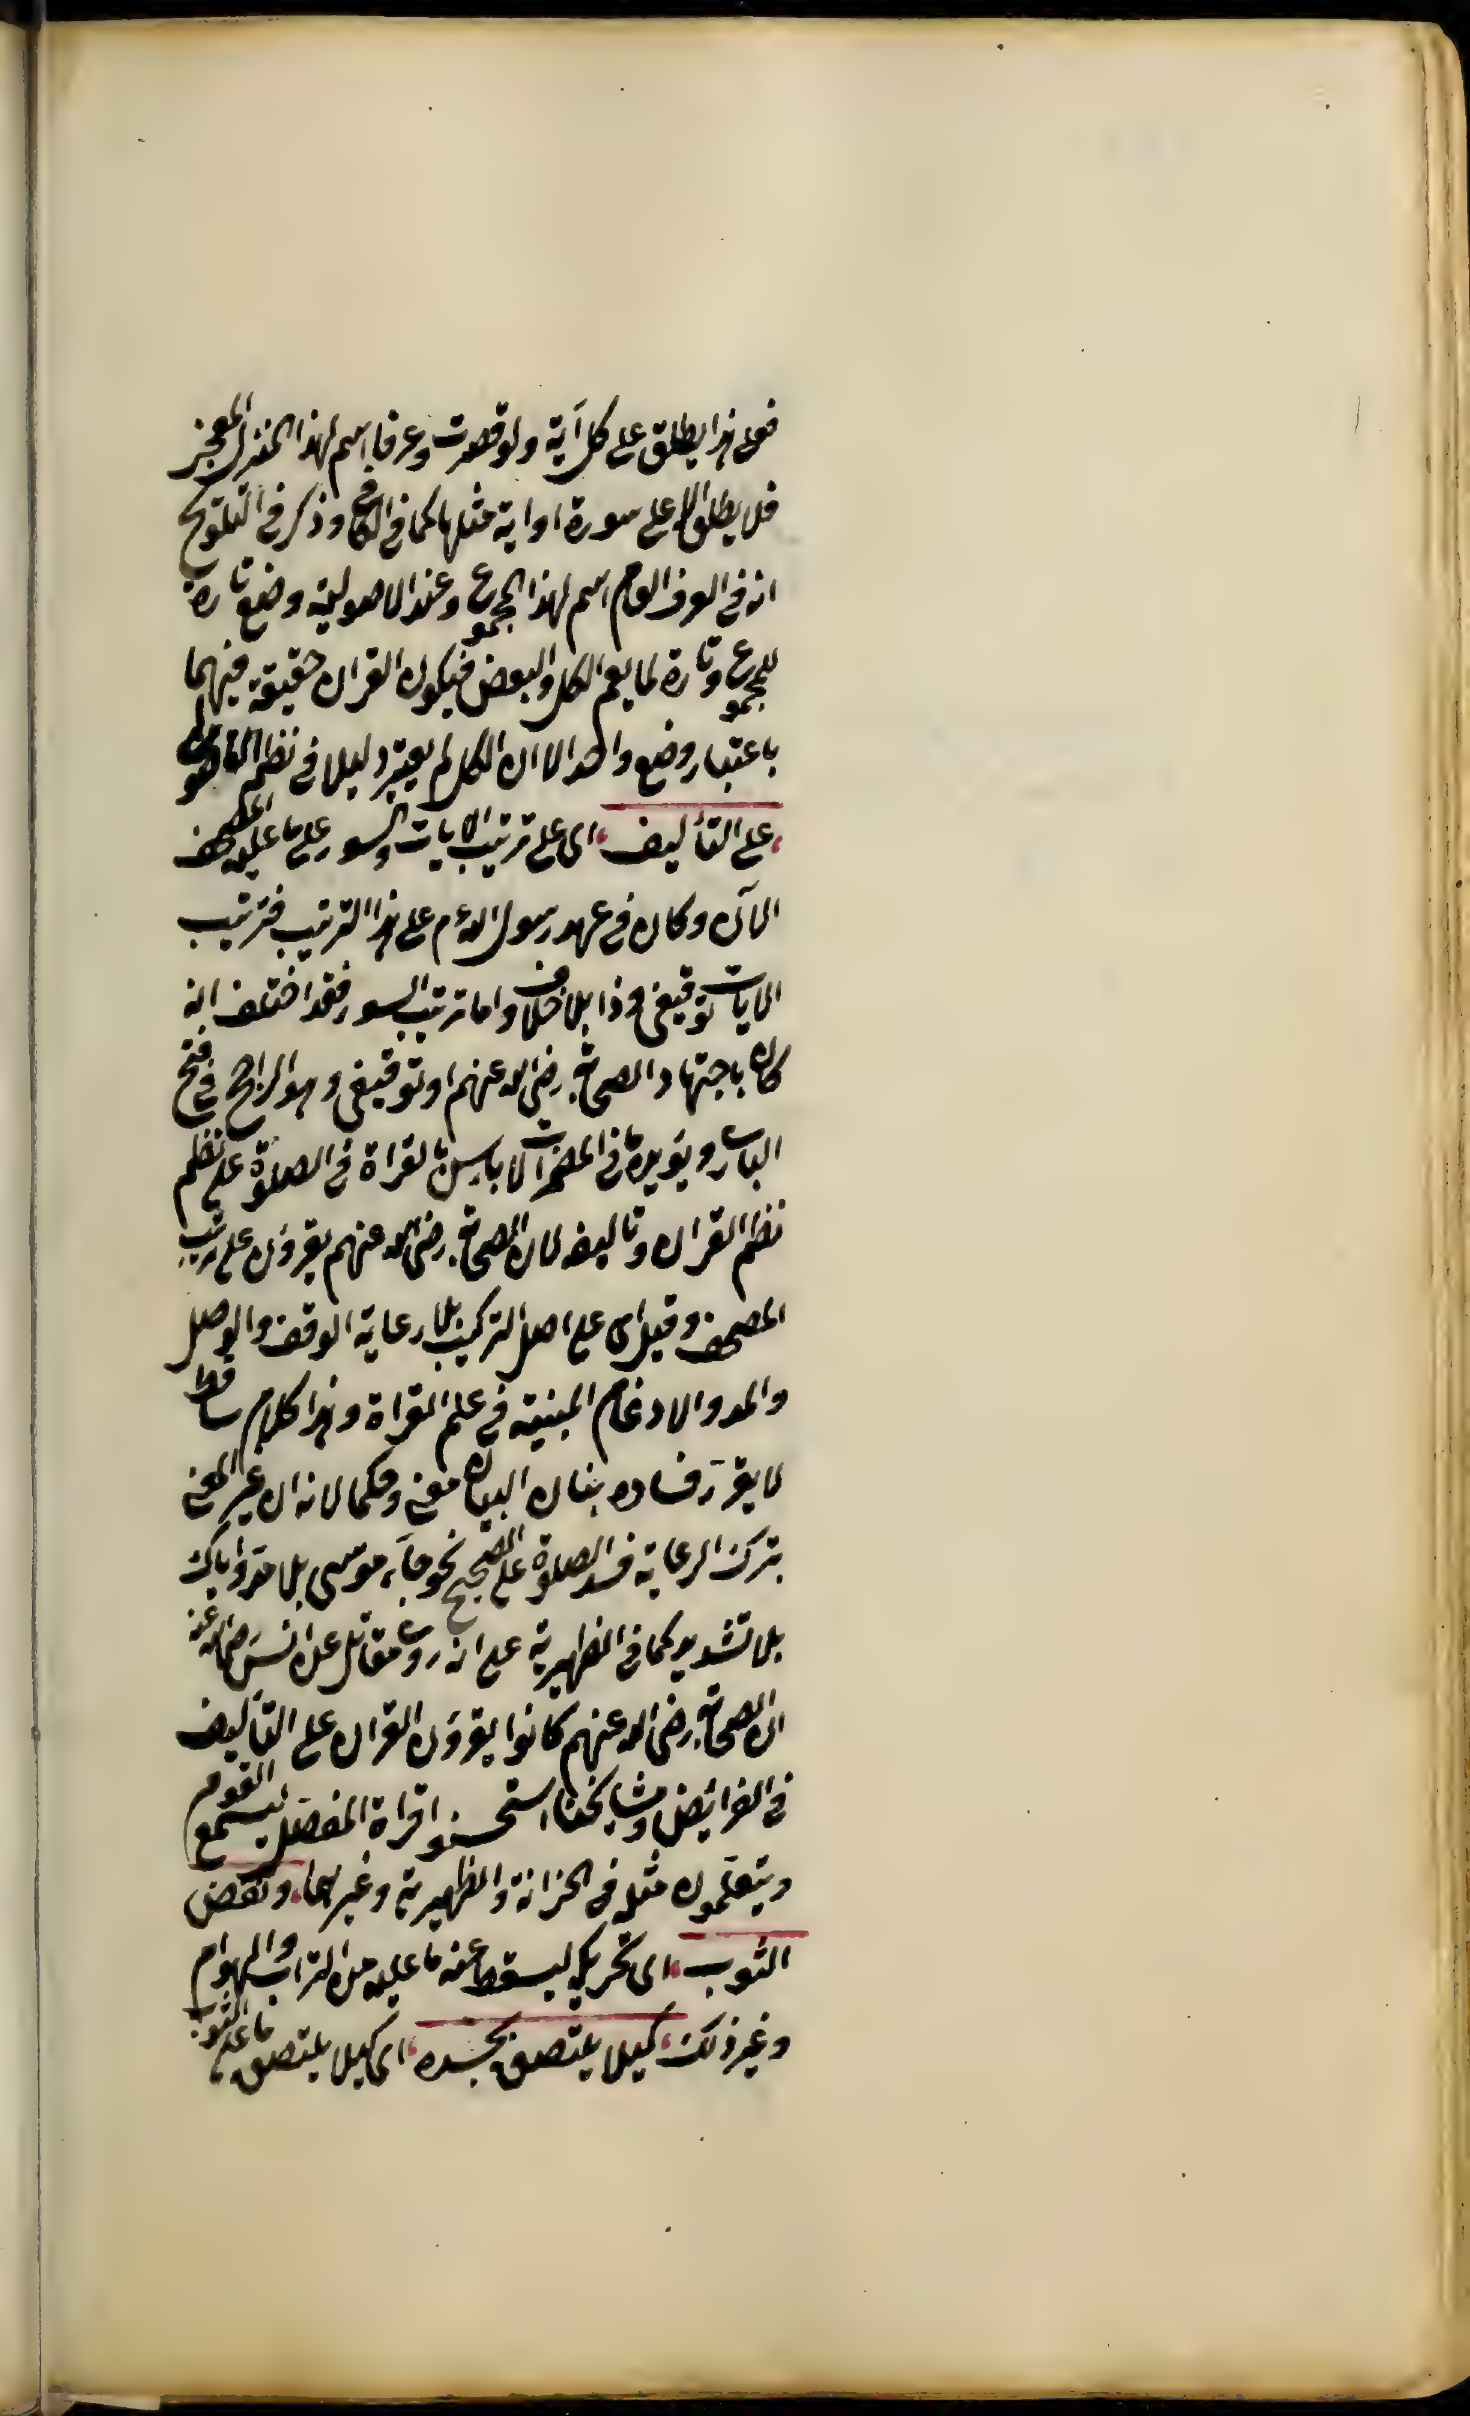 فعلى هذا يطلق على كل آية ولو قصرت وعرفا اسم لهذا المنزل المعجز
فلا يطلق الا على سورة او اية مثلها كما فى الكافي وذكر فى التلويح
انه فى العرف العام اسم لهذا المجموع وعند الاصوليين وضع تارة
للمجموع وتارة لما يعم الكل والبعض فيكون القران حقيقة فيهما
باعتبار وضع واحد الا ان الكل لم يعتبر دليلا فى نظر الاصولي
على التأليف، اى على ترتيب الايات والسور على ما عليه المصحف
الآن وكان فى عهد رسول الله ءم على هذا الترتيب فترتيب
الايات توقيفى وذا بلا خلاف واما ترتيب السور فقد اختلف انه
كان باجتهاد الصحابة رضى الله عنهم او توقيفى وهو الراجح فى فتح
البارى ويؤيده ما فى المضمرات لا باس بالقراة فى الصلوة على نظم
نظم القران وتاليفه لان الصحابة رضى الله عنهم يقرؤن على ترتيب
المصحف وقيل اى على اصل التركيب بلا رعاية الوقف والوصل
والمد والادغام المبنية فى علم القراة وهذا كلام ساقط
لا يقرر فساده بنان البيان معنى وحكما لانه ان غير المعنى
بترك الرعاية فسد الصلوة على الصحيح نحو جآء موسى بلا مد واياك
بلا تشديد كما فى الظهيرية على انه روى مقاتل عن انس رضى الله عنه
ان الصحابة رضى الله عنهم كانوا يقرؤن القران على التأليف
فى الفرائض ومشايخنا استحسنوا قراة المفصل ليستمع القوم
ويتعلمون مثله فى الخزانة والظهيرية وغيرهما، ونفض
الثوب، اى تحريكه ليسقط عنه ما عليه من التراب والهوام
وغير ذلك، كيلا يلتصق بجسده، اى كيلا يلتصق ما على الثوب